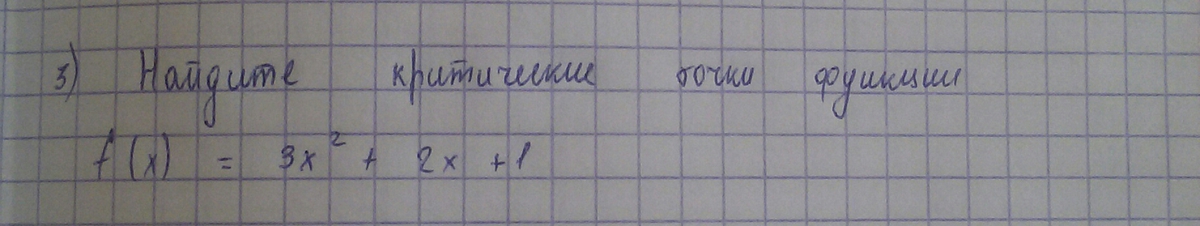 3) Найдите критические точки функции
f(x) = 3x² + 2x + 1